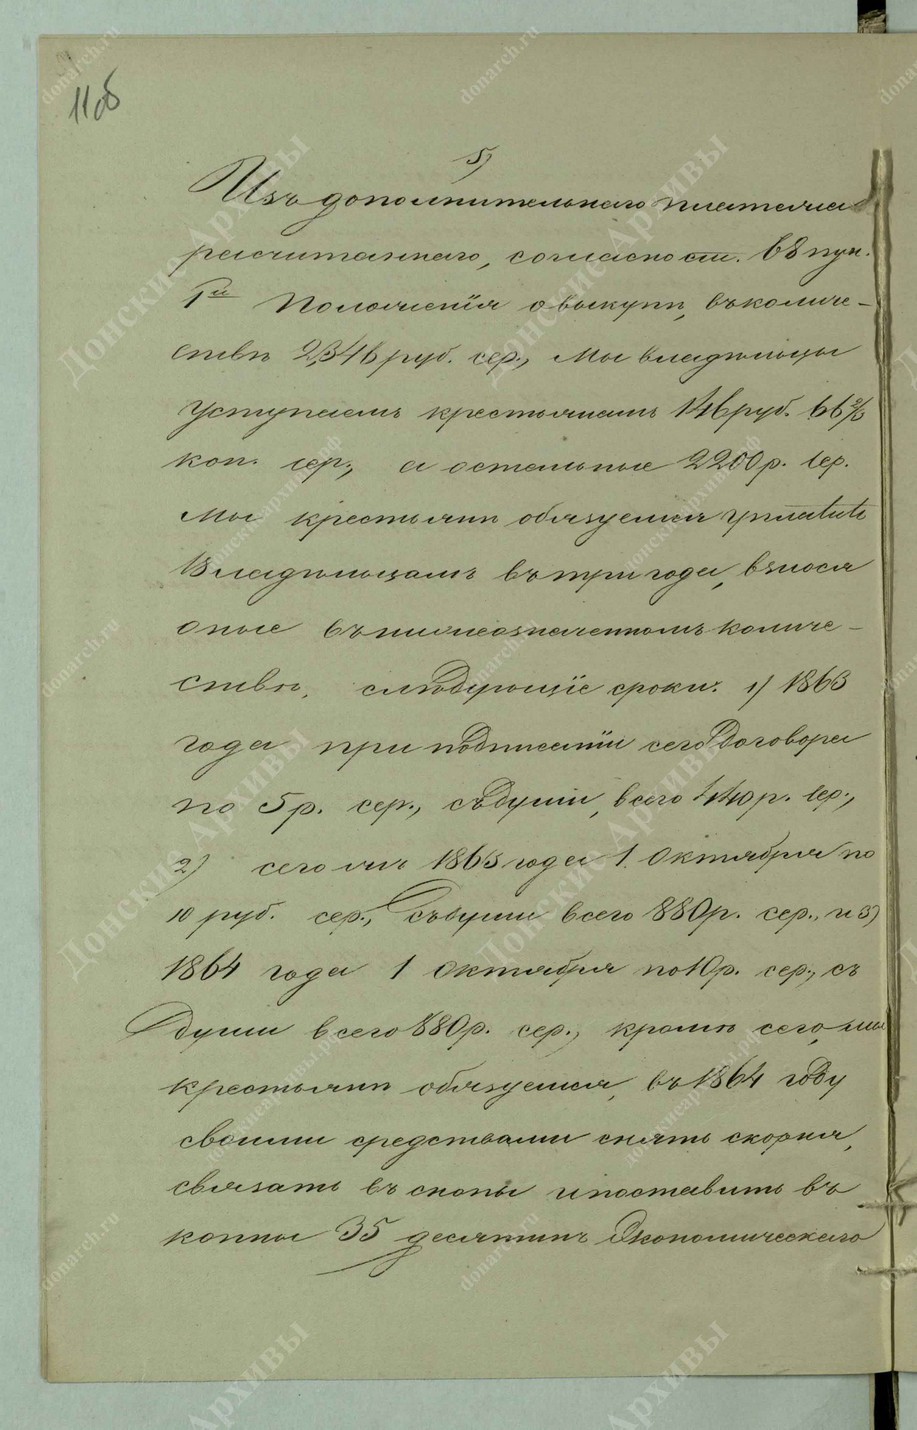 11об
5)
Изъ дополнительнаго платежа
расчитаннаго, согласно ст. 68 пун.
1й Положенія о выкупѣ, въ количе-
ствѣ 2,346 руб. сер., мы владѣльцы
уступаемъ крестьянамъ 146 руб. 66 2/3
коп. сер., а остальные 2200 р. сер.
мы крестьяне обязуемся уплатить
Владѣльцамъ въ три года, взнося
оные въ нижеозначенномъ количе-
ствѣ, слѣдующіе сроки: 1) 1863
года при подписаніи сего Договора
по 5 р. сер., съ души, всего 440 р. сер.,
2) сего жъ 1863 года 1. Октября по
10 руб. сер., съ души всего 880 р. сер., и 3)
1864 года 1 Октября по 10 р. сер., съ
души всего 880 р. сер., кромѣ сего, мы
крестьяне обязуемся, въ 1864 году
своими средствами снять скорня,
связать въ снопы и поставить въ
копны 35 десятинъ Экономическаго
Донские Архивы
donarch.ru
донскиеархивы.рф